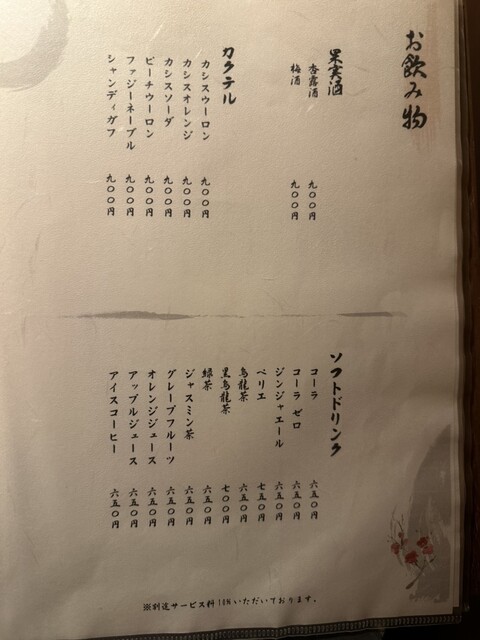 お飲み物
果実酒
杏露酒 九〇〇円
梅酒 九〇〇円
カクテル
カシスウーロン 九〇〇円
カシスオレンジ 九〇〇円
カシスソーダ 九〇〇円
ピーチウーロン 九〇〇円
ファジーネーブル 九〇〇円
シャンディガフ 九〇〇円
ソフトドリンク
コーラ 六五〇円
コーラ ゼロ 六五〇円
ジンジャエール 六五〇円
ペリエ 七五〇円
烏龍茶 六五〇円
黒烏龍茶 七〇〇円
緑茶 六五〇円
ジャスミン茶 六五〇円
グレープフルーツ 六五〇円
オレンジジュース 六五〇円
アップルジュース 六五〇円
アイスコーヒー 六五〇円
※別途サービス料10%いただいております。